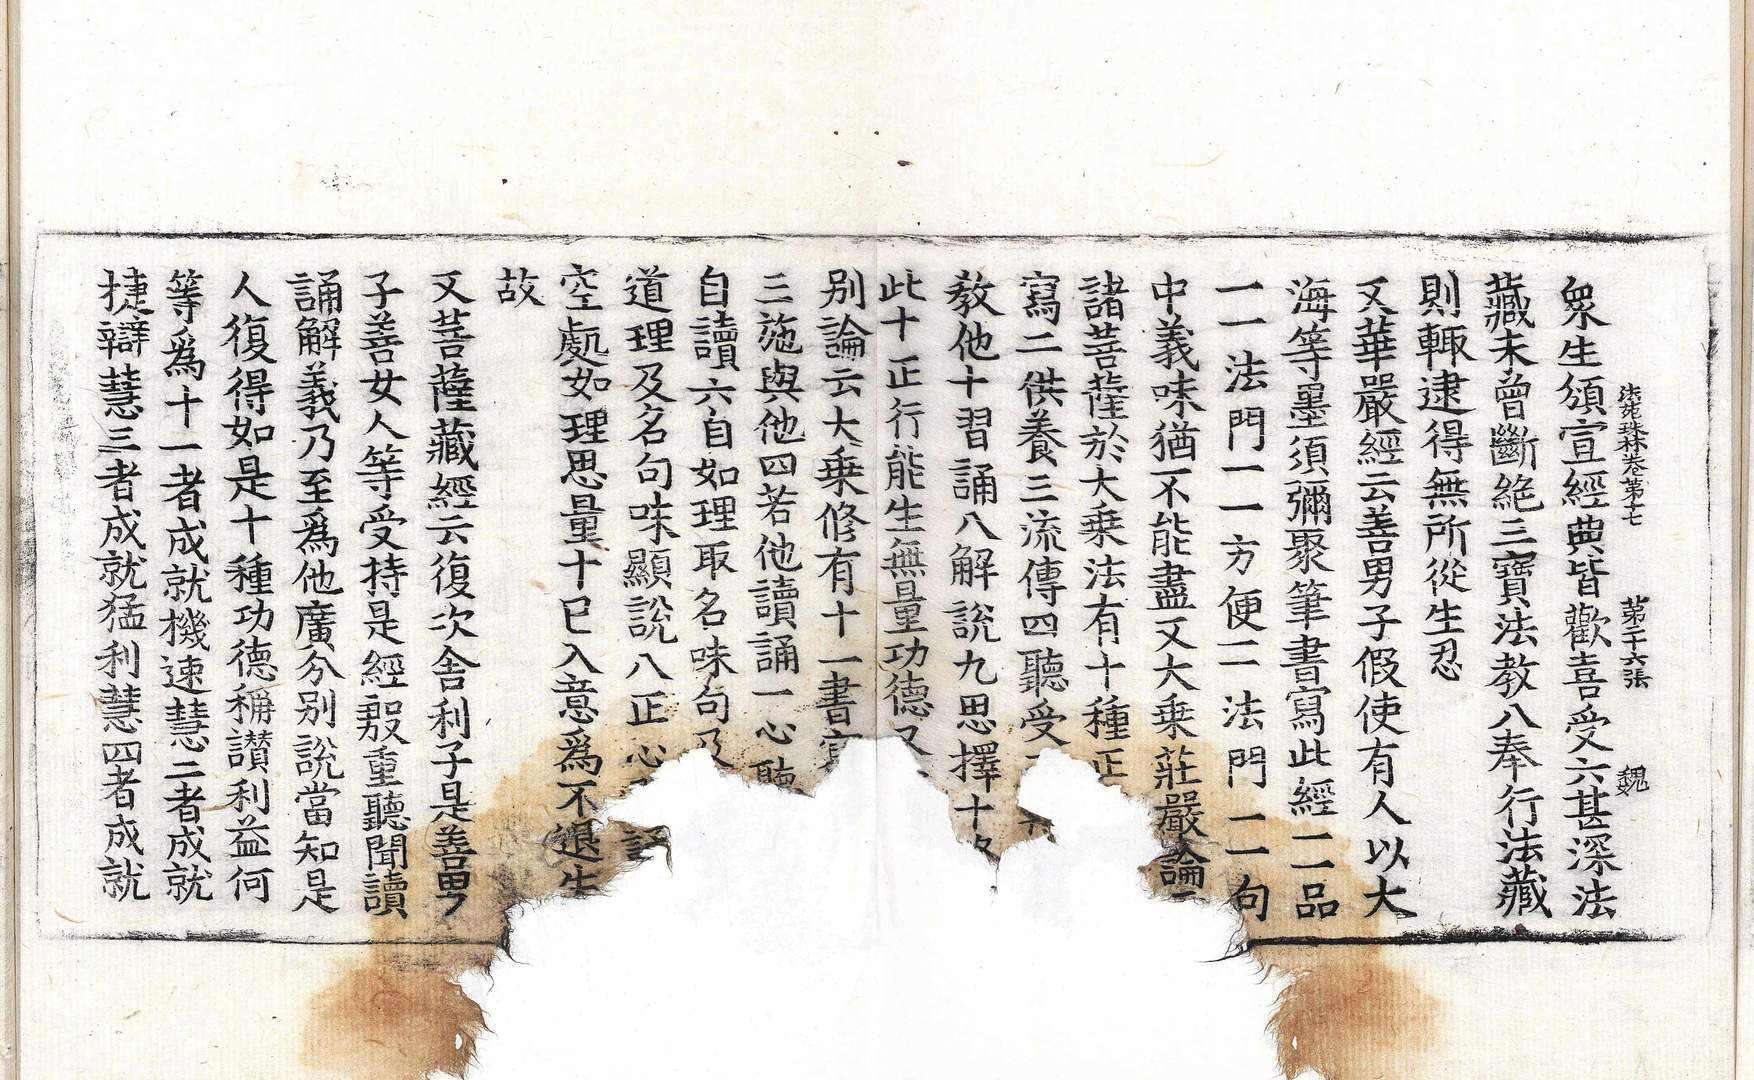 法苑珠林卷第十七　第二十六張　魏
衆生頒宣經典皆歡喜受六甚深法
藏未曾斷絶三寶法教八奉行法藏
則輙逮得無所從生忍
又華嚴經云善男子假使有人以大
海等墨須彌聚筆書寫此經一一品
一一法門一一方便一一法門一一句
中義味猶不能盡又大乗莊嚴論
諸菩薩於大乗法有十種正
寫二供養三流傳四聽受
教他十習誦八解說九思擇十
此十正行能生無量功德又
別論云大乗修有十一書寫
三施與他四若他讀誦一心聽
自讀六自如理取名味句及
道理及名句味顯說八正心
空處如理思量十已入意爲不退失
故
又菩薩藏經云復次舎利子是善男
子善女人等受持是經殷重聽聞讀
誦解義乃至爲他廣分別說當知是
人復得如是十種功德稱讃利益何
等爲十一者成就機速慧二者成就
捷辯慧三者成就猛利慧四者成就